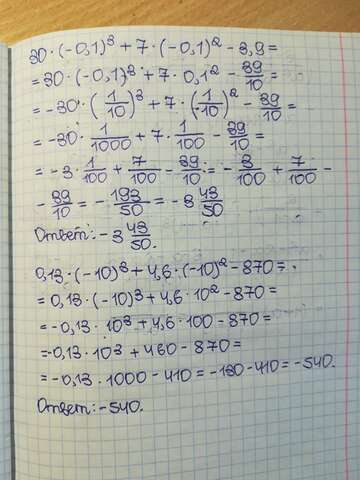 30·(-0,1)³+7·(-0,1)²-3,9=
=30·(-0,1)³+7·0,1²-39/10=
=-30·(1/10)³+7·(1/10)²-39/10=
=-30·1/1000+7·1/100-39/10=
=-3·1/100+7/100-39/10=-3/100+7/100-
-39/10=-193/50=-3 43/50
Ответ:-3 43/50.
0,13·(-10)³+4,6·(-10)²-870=
=0,13·(-10)³+4,6·10²-870=
=-0,13·10³+4,6·100-870=
=-0,13·10³+460-870=
=-0,13·1000-410=-130-410=-540.
Ответ:-540.